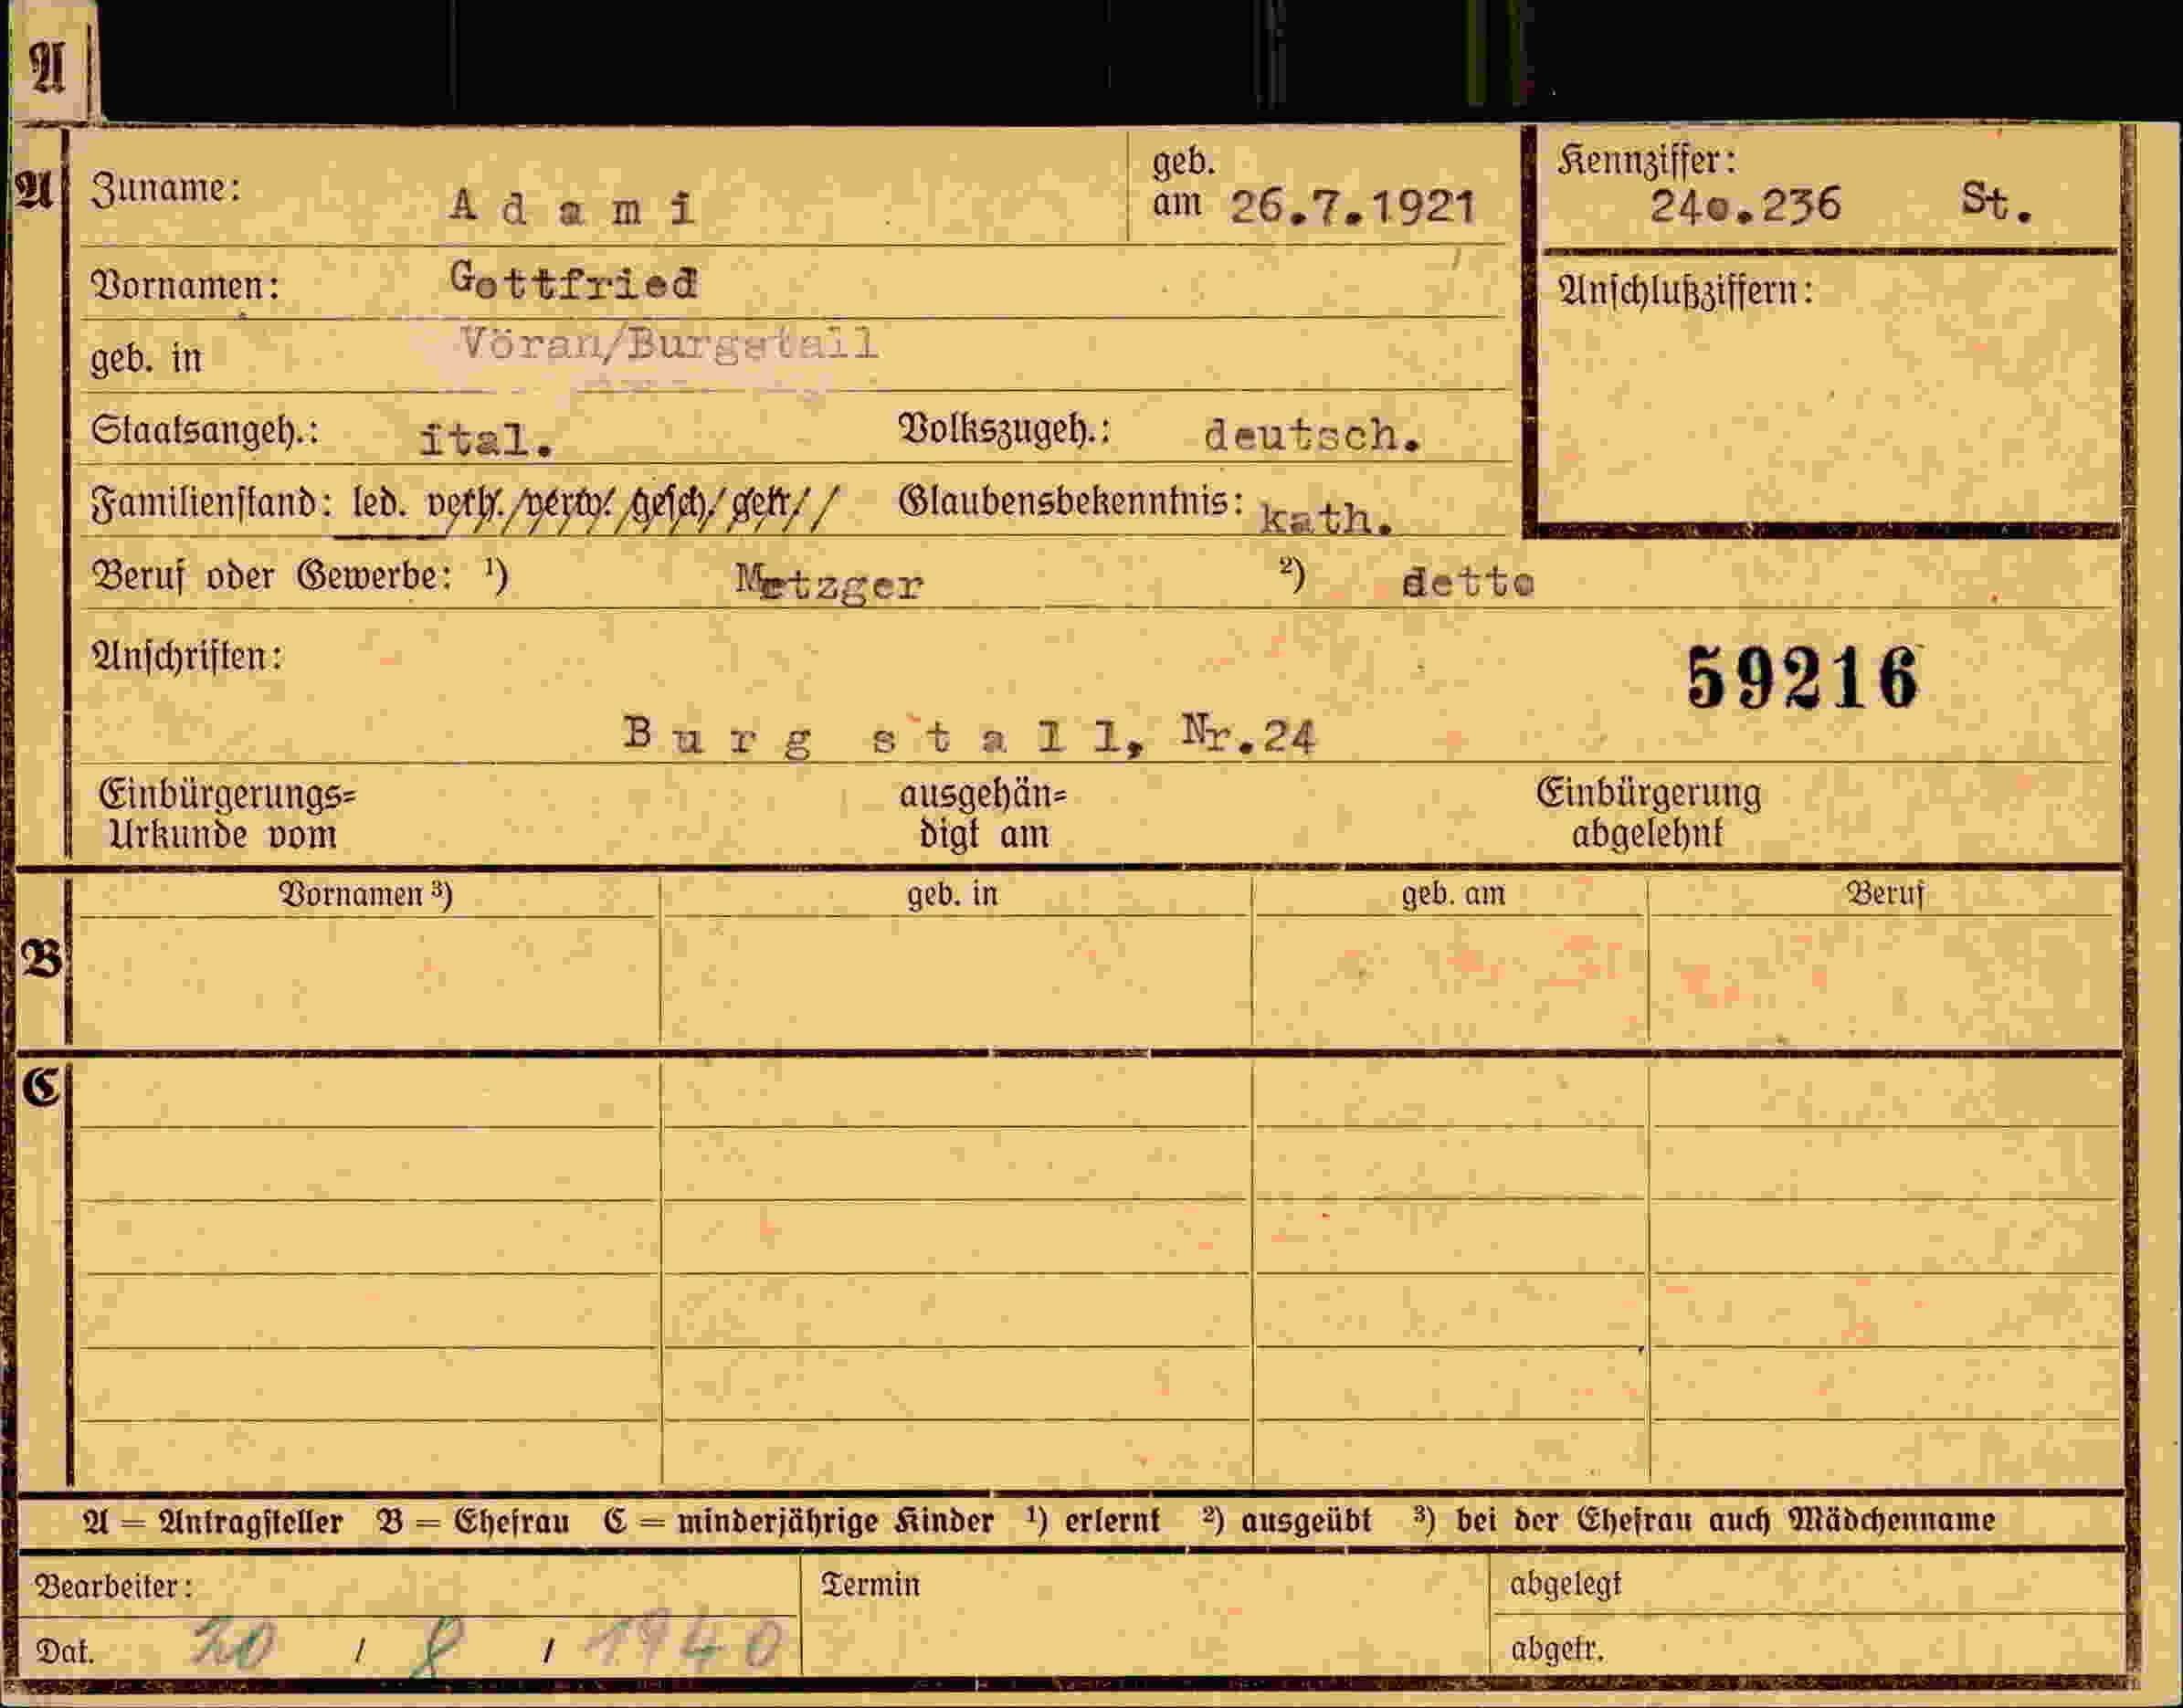 A
A
Zuname: Adami geb. am 26.7.1921
Kennziffer: 24o.236 St.
Vornamen: Gottfried
Anschlußziffern:
geb. in Vöran/Burgstall
Staatsangeh.: ital. Volkszugeh.: deutsch.
Familienstand: led. verh. verw. gesch. getr. Glaubensbekenntnis: kath.
Beruf oder Gewerbe: ¹) Metzger ²) detto
Anschriften:
59216
Burgstall, Nr.24
Einbürgerungs=
Urkunde vom
ausgehän=
digt am
Einbürgerung
abgelehnt
B
Vornamen ³) geb. in geb. am Beruf
C
A = Antragsteller B = Ehefrau C = minderjährige Kinder ¹) erlernt ²) ausgeübt ³) bei der Ehefrau auch Mädchenname
Bearbeiter:
Dat. 20 / 8 / 1940
Termin
abgelegt
abgetr.